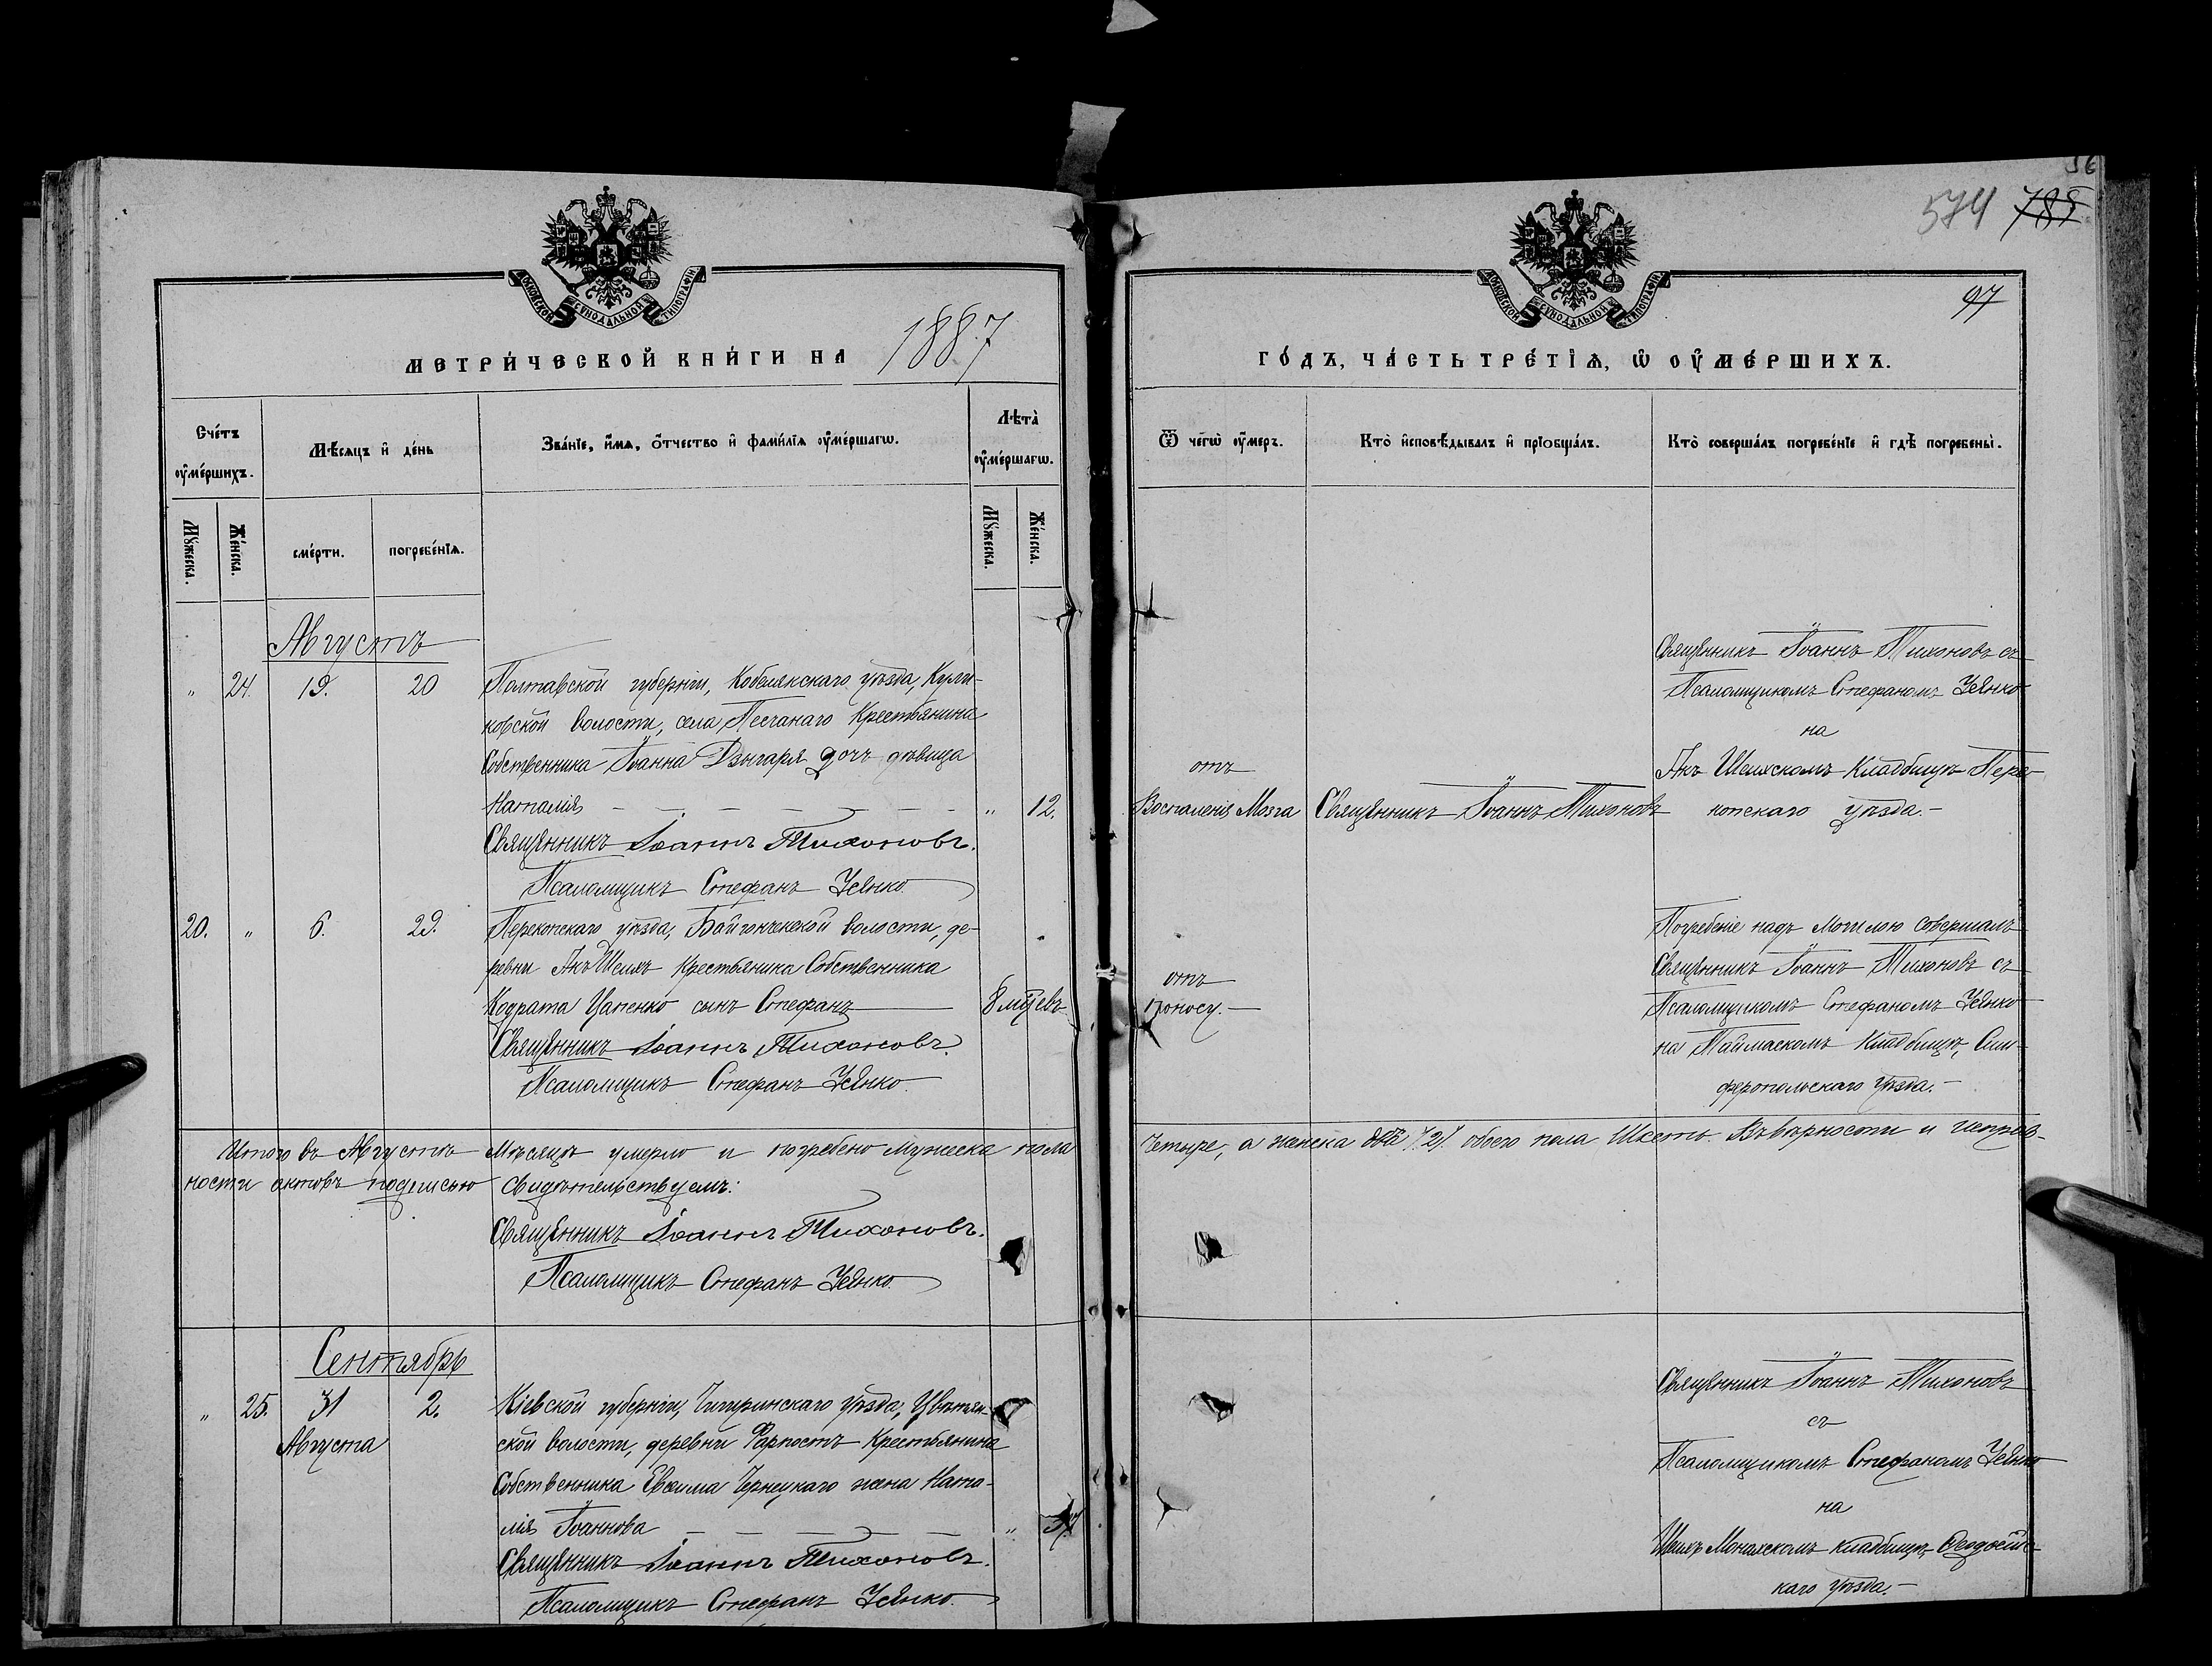 56
574 785
МОСКОВСКОЙ СѴНОДАЛЬНОЙ ТИПОГРАФІИ
МОСКОВСКОЙ СѴНОДАЛЬНОЙ ТИПОГРАФІИ
97
МЕТРИ́ЧЕСКОЙ КНИ́ГИ НА 1887
ГО́ДЪ, ЧА́СТЬ ТРЕ́ТІѦ, Ѡ҆ ОУ҆МЕ́РШИХЪ.
Сче́тъ оу҆ме́ршихъ.
Мѣ́сяцъ и҆ де́нь
Зва́ніе, и҆́мѧ, ѻ҆́тчество и҆ фами́лїѧ оу҆ме́ршагѡ.
Лѣта̀ оу҆ме́ршагѡ.
Ѿ чегѡ̀ оу҆́меръ.
Кто̀ и҆сповѣ́дывалъ и҆ прїобща́лъ.
Кто̀ соверша́лъ погребе́нїе и҆ гдѣ̀ погребены̀.
Мꙋ́жеска.
Же́нска.
сме́рти.
погребе́нїѧ.
Мꙋ́жеска.
Же́нска.
Августъ
" 24. 19. 20 Полтавской губерніи, Кобелякскаго уѣзда, Кули-
ковской волости, села Песчанаго Крестьянина
Собственника Іоанна Дзыгаря дочь дѣвица
Наталія " 12.
Священникъ Іоаннъ Тихоновъ.
Псаломщикъ Стефанъ
отъ
Воспаленія Мозга
Священникъ Іоаннъ Тихоновъ
Священникъ Іоаннъ Тихоновъ съ
Псаломщикомъ Стефаномъ
на
Акъ Шеихскомъ Кладбищѣ Пере-
копскаго уѣзда.
20. " 6. 29. Перекопскаго уѣзда, Байгончекской волости, де-
ревни Акъ Шеихъ Крестьянина Собственника
Кодрата Цапенко сынъ Стефанъ 8 мцевъ
Священникъ Іоаннъ Тихоновъ.
Псаломщикъ Стефанъ
отъ
поносу.
Погребеніе надъ Могилою совершалъ
Священникъ Іоаннъ Тихоновъ съ
Псаломщикомъ Стефаномъ
на Таймаскомъ Кладбищѣ, Сим-
феропольскаго Уѣзда.
Итого въ Августѣ Мѣсяцѣ умерло и погребено Мужеска пола
Четыре, а женска двѣ /2/. обоего пола Шесть. Въ вѣрности и исправ-
ности актовъ подписью свидѣтельствуемъ:
Священникъ Іоаннъ Тихоновъ.
Псаломщикъ Стефанъ
Сентябрь
" 25. 31 2. Кіевской губерніи, Чигиринскаго уѣзда, Цвѣтян-
Августа
ской волости, деревни Фарпостъ Крестьянина
Собственника Евфима Чернецкаго жена Ната-
лія Іоаннова "
Священникъ Іоаннъ Тихоновъ.
Псаломщикъ Стефанъ
Священникъ Іоаннъ Тихоновъ
съ
Псаломщикомъ Стефаномъ
на
Шеихъ Монахскомъ кладбищѣ, Ѳеодосійс-
каго уѣзда.